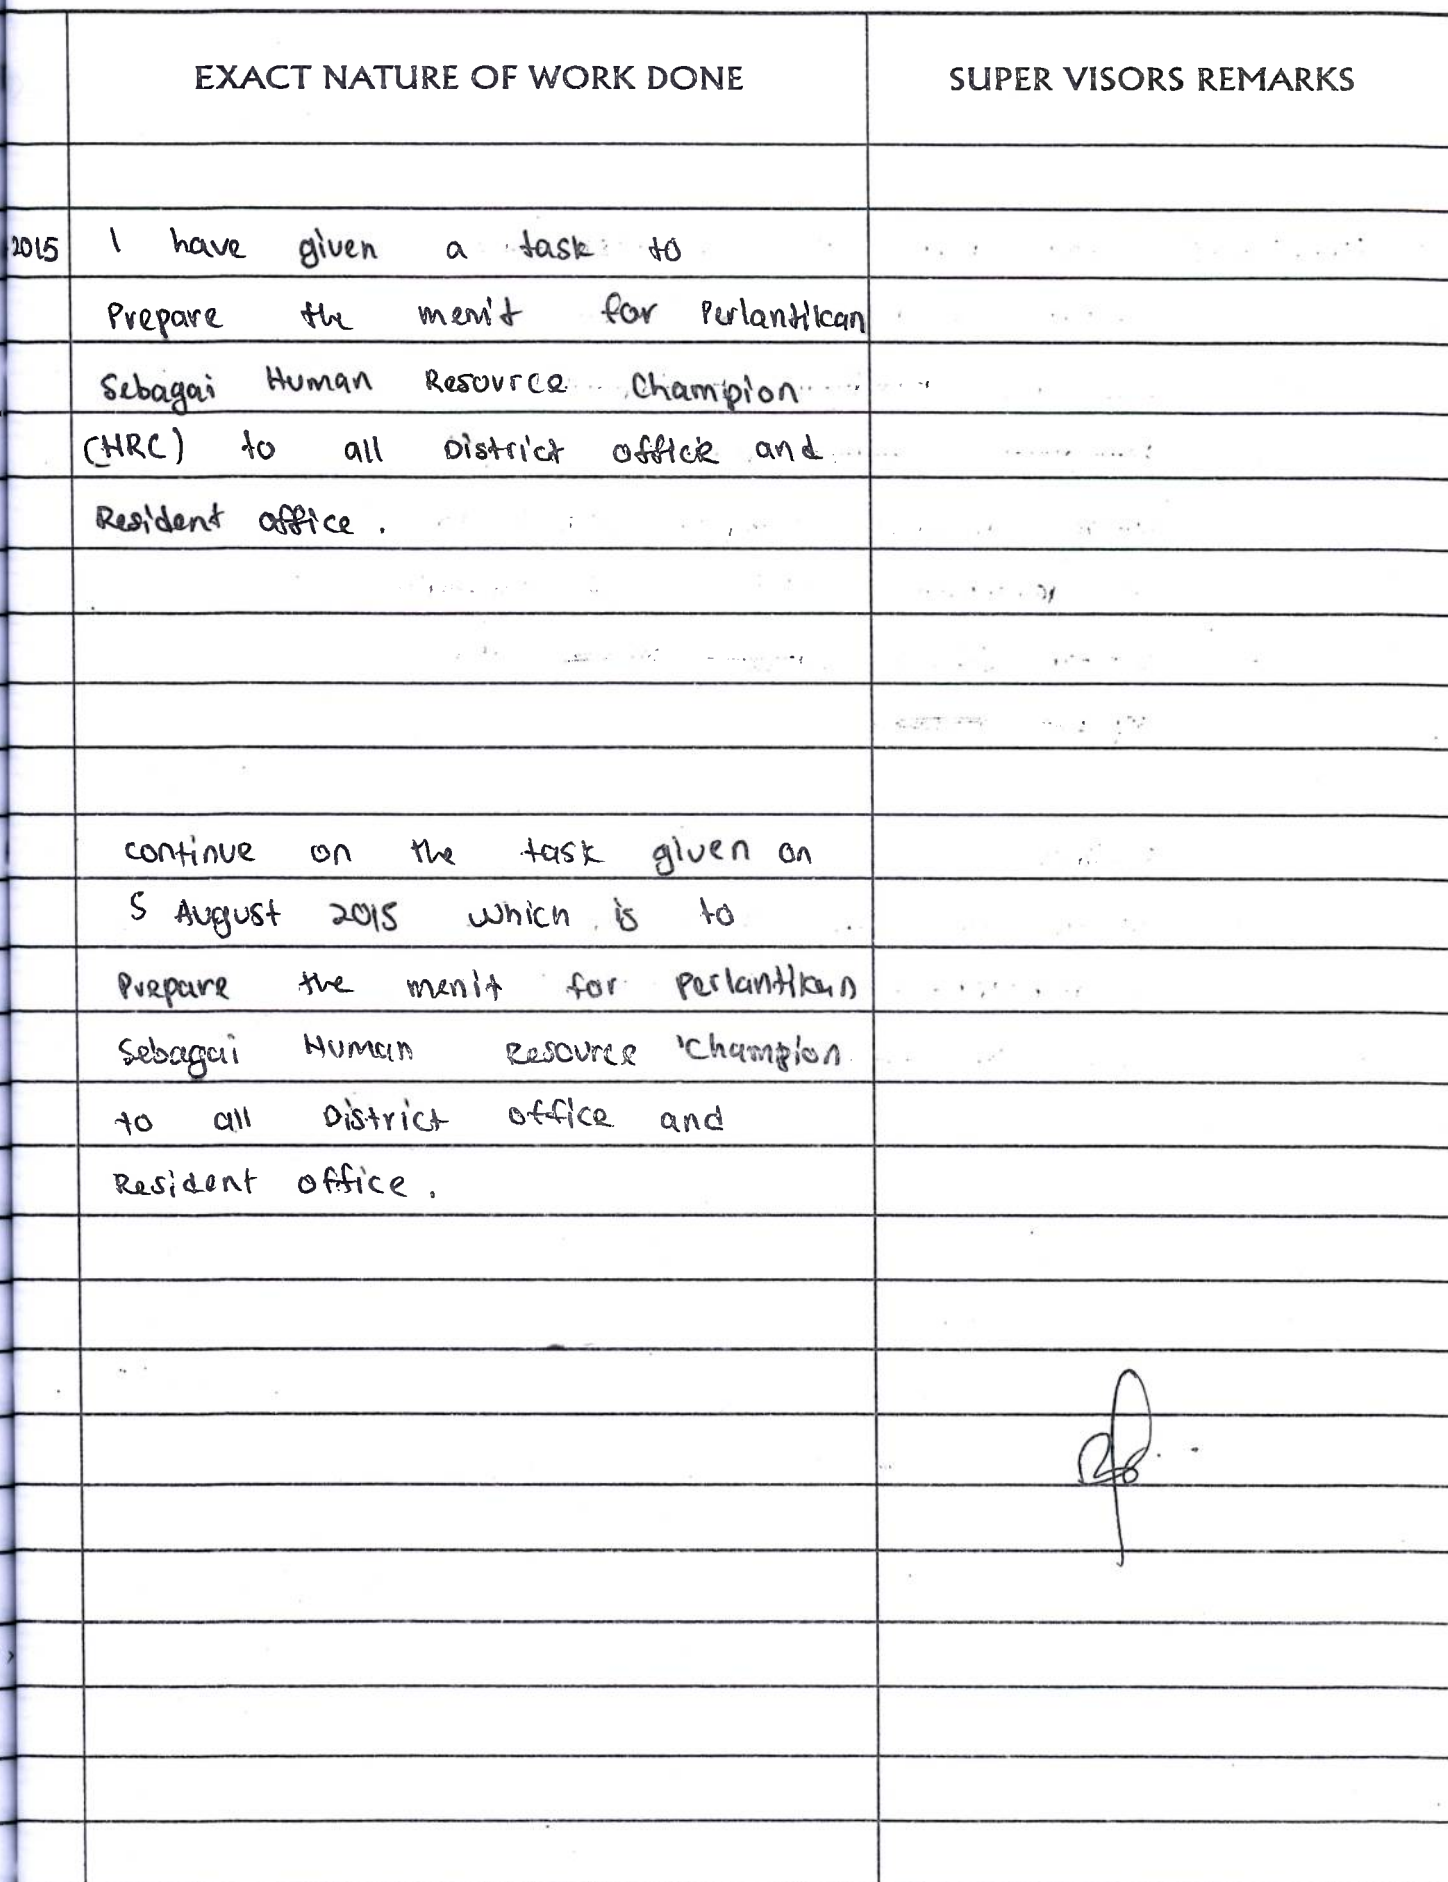 EXACT NATURE OF WORK DONE
SUPER VISORS REMARKS
2015 I have given a task to
Prepare the merit for Perlantikan
Sebagai Human Resource Champion
(HRC) to all District office and
Resident office.
continue on the task given on
5 August 2015 which is to
Prepare the merit for Perlantikan
Sebagai Human Resource Champion
to all District office and
Resident office.